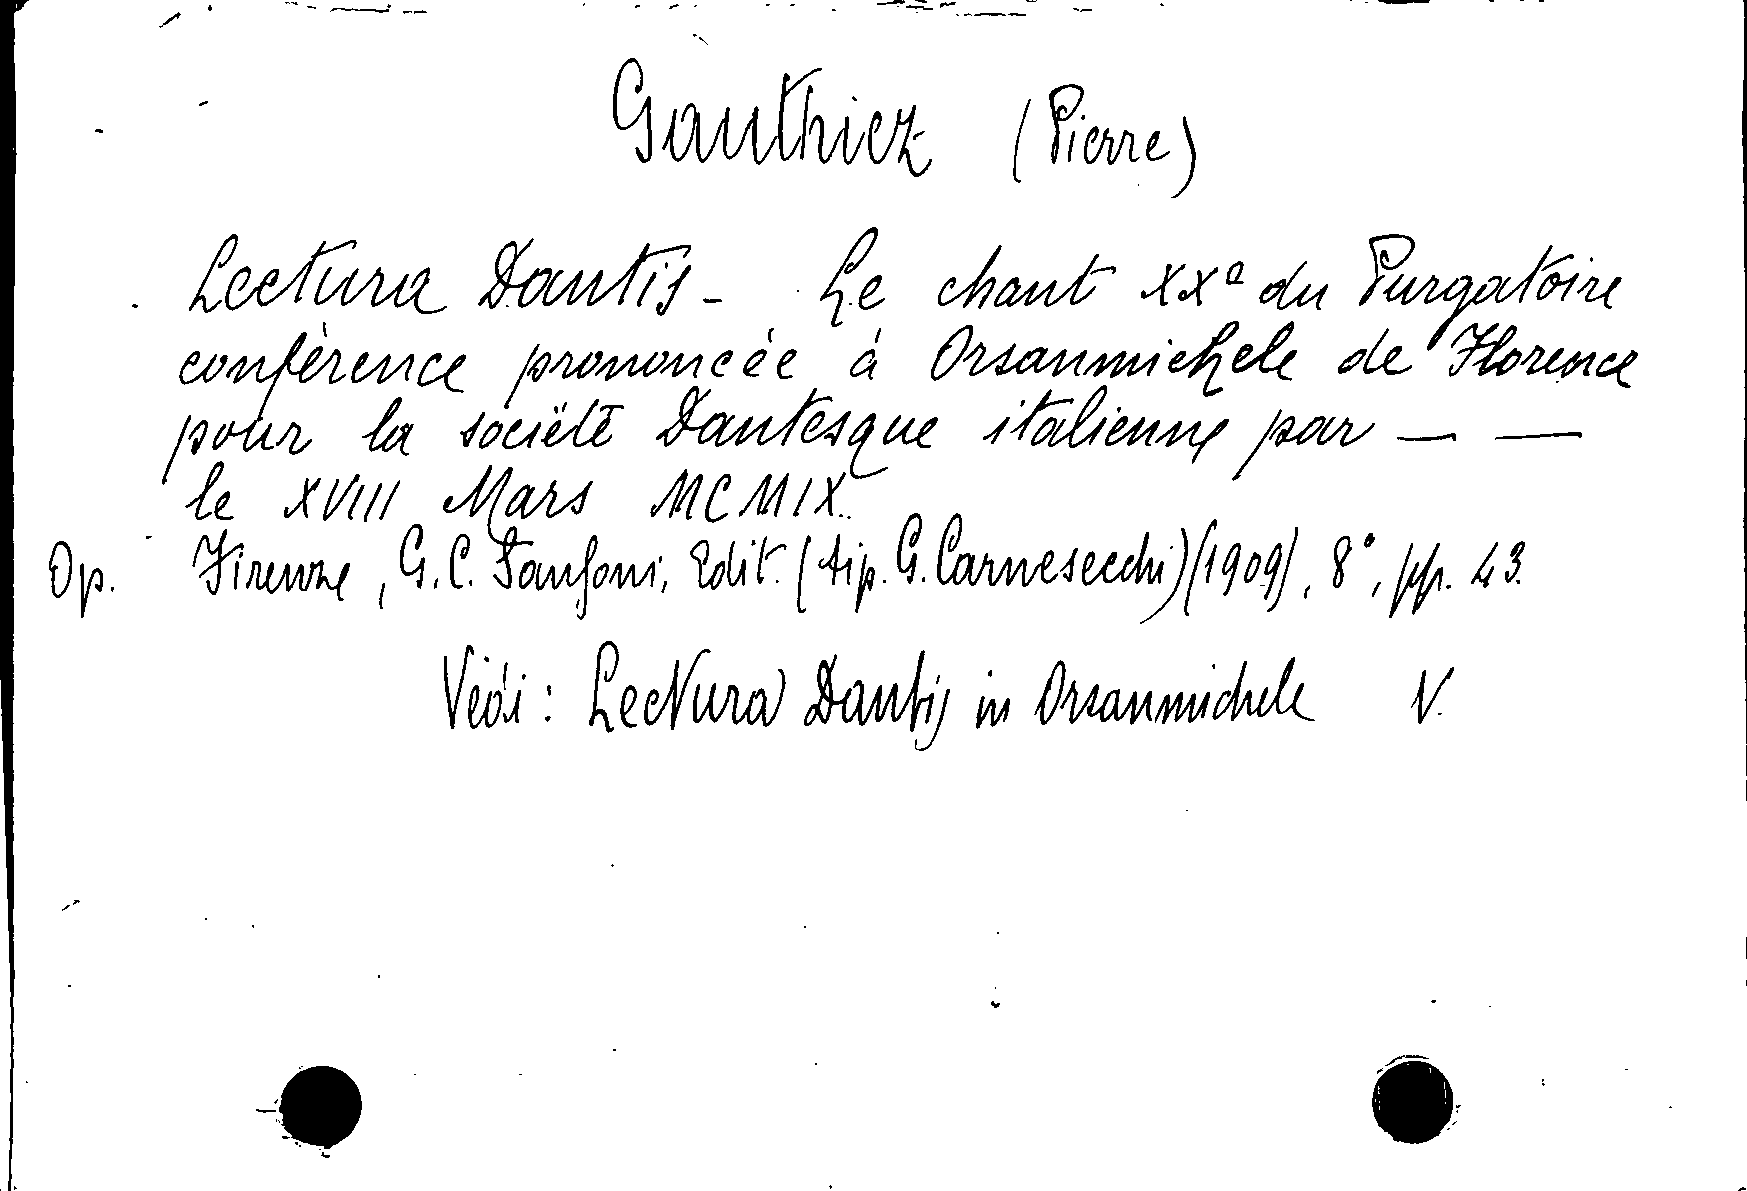 Gauthiez (Pierre)
Lectura Dantis - Le chant XXᵉ du Purgatoire
conférence prononcée à Orsanmichele de Florence
pour la société Dantesque italienne par — —
le XVIII Mars MCMIX.
Op. Firenze, G. C. Sansoni, Edit. (tip. G. Carnesecchi) (1909), 8°, pp. 43.
Vedi: Lectura Dantis in Orsanmichele V.